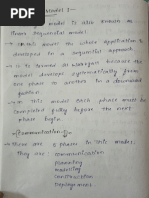 Model :-
model is also known as
linear sequential model.
In this model the whole application is
developed in a sequential approach.
It is termed as waterfall because the
model develops systematically from
one phase to another in a downward
fashion.
In this model each phase must be
completed fully before the next
phase begin.
(Communication)
There are 5 phases in this model,
They are communication
planning
modeling
construction
Deployement